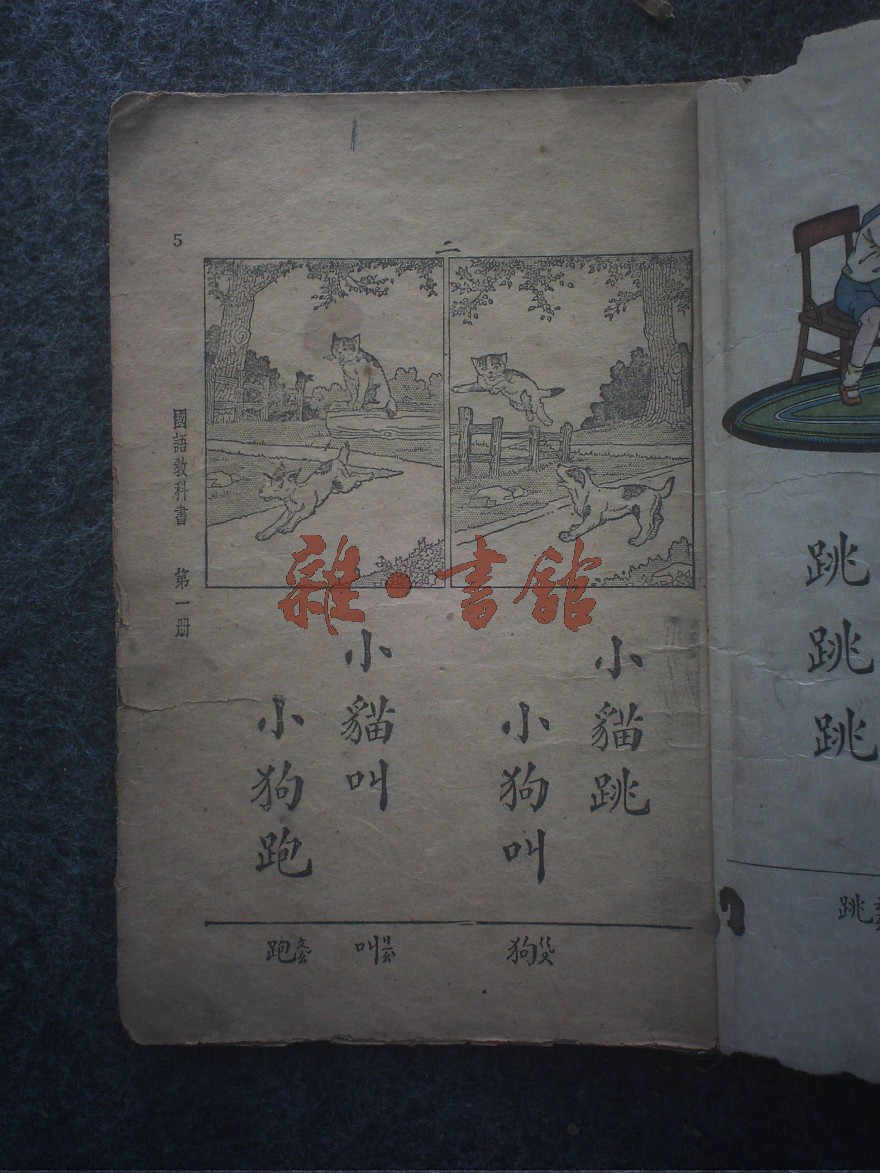 跳跳跳
跳
二
小貓跳
小狗叫
小貓叫
小狗跑
狗
叫
跑
5
國語教科書 第一册
雜·書館